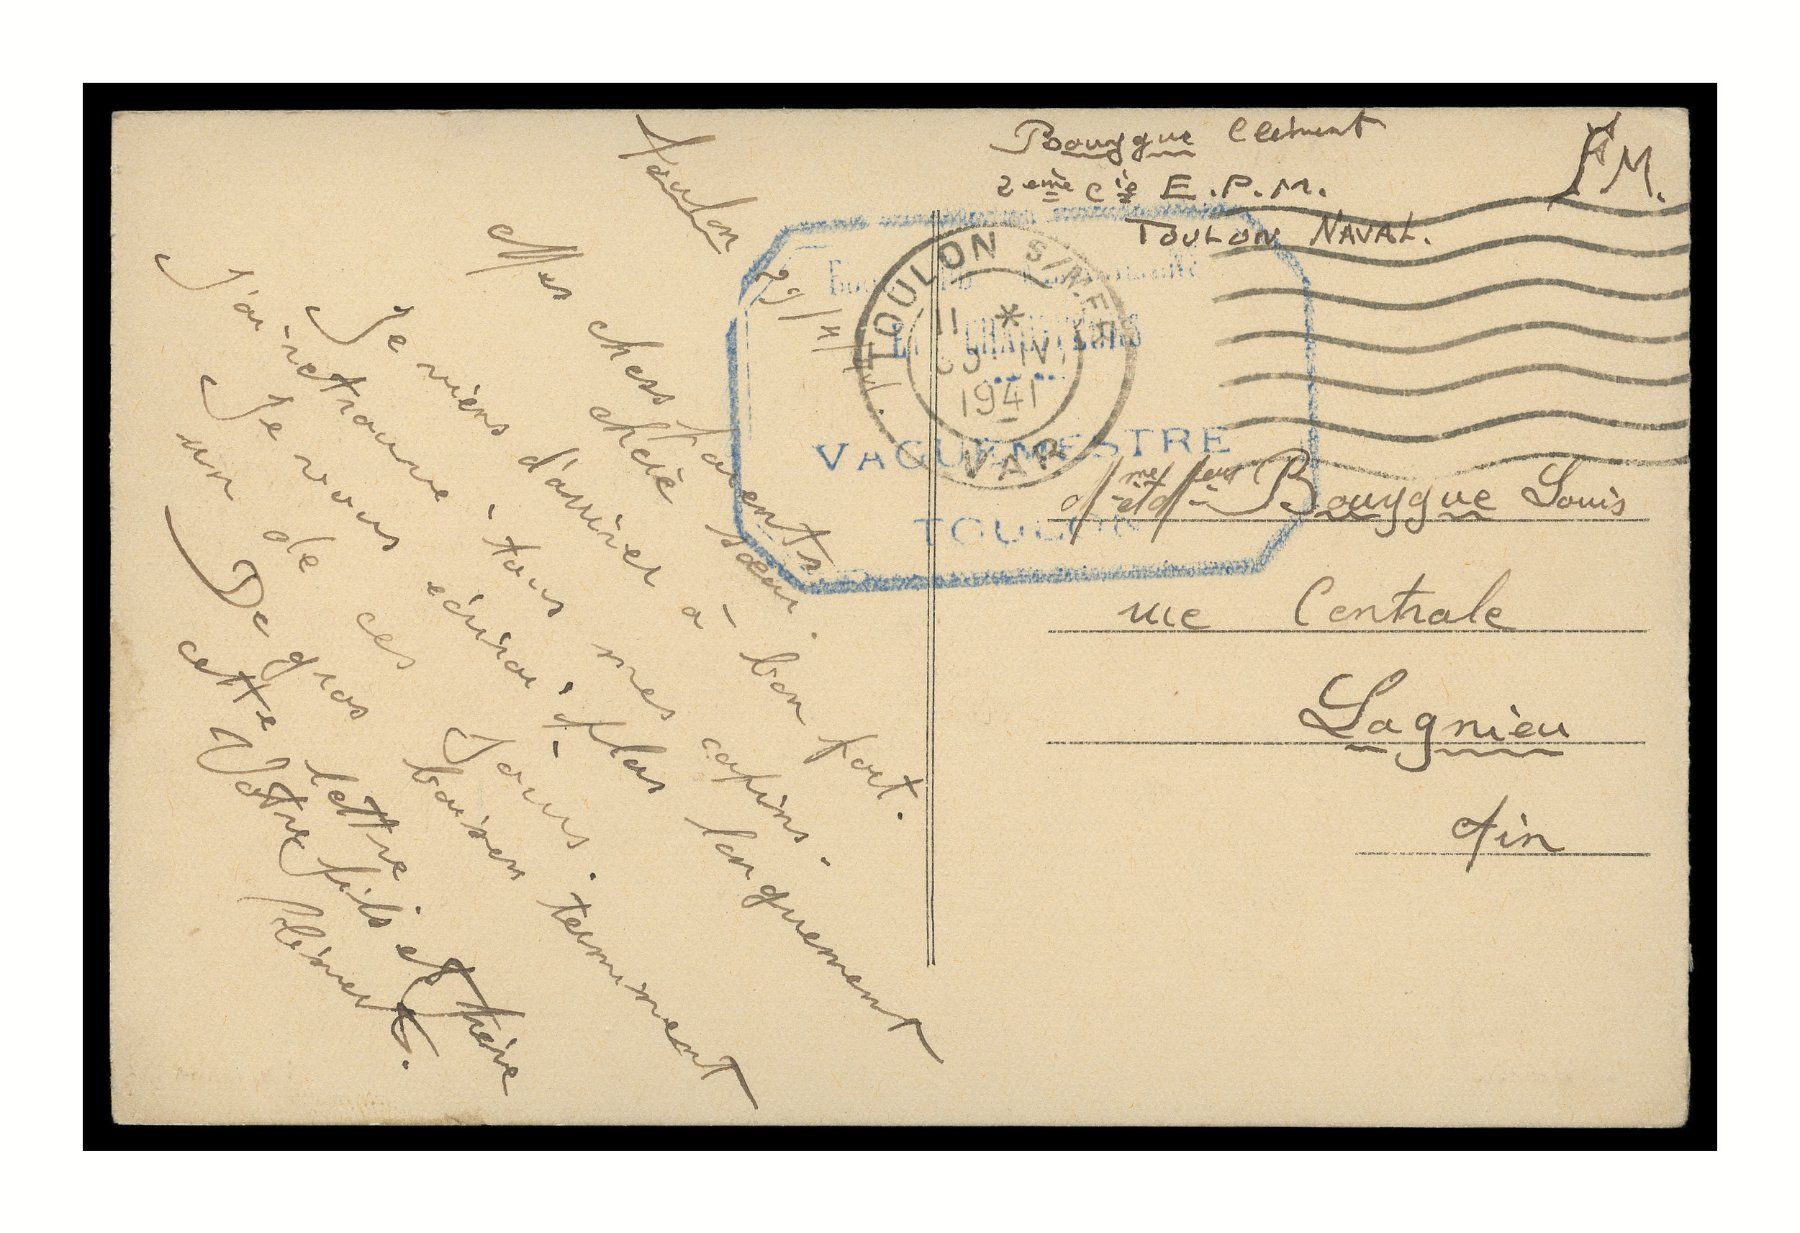 Toulon 29/4/41.
Mes chers Parents
chère soeur.
Je viens d'arriver à bon port.
J'ai retrouvé tous mes copins.
Je vous écrirai plus longuement
un de ces Jours.
De gros baisers terminent
cette lettre
Votre fils et frère
Clément.
Bouygue Clément
2eme Cie E.P.M.
TOULON NAVAL.
F.M.
TOULON S/MER
11 *
IV
1941
VAR
VAGUEMESTRE
TOULON
Mme et Mr Bouygue Louis
rue Centrale
Lagnieu
Ain